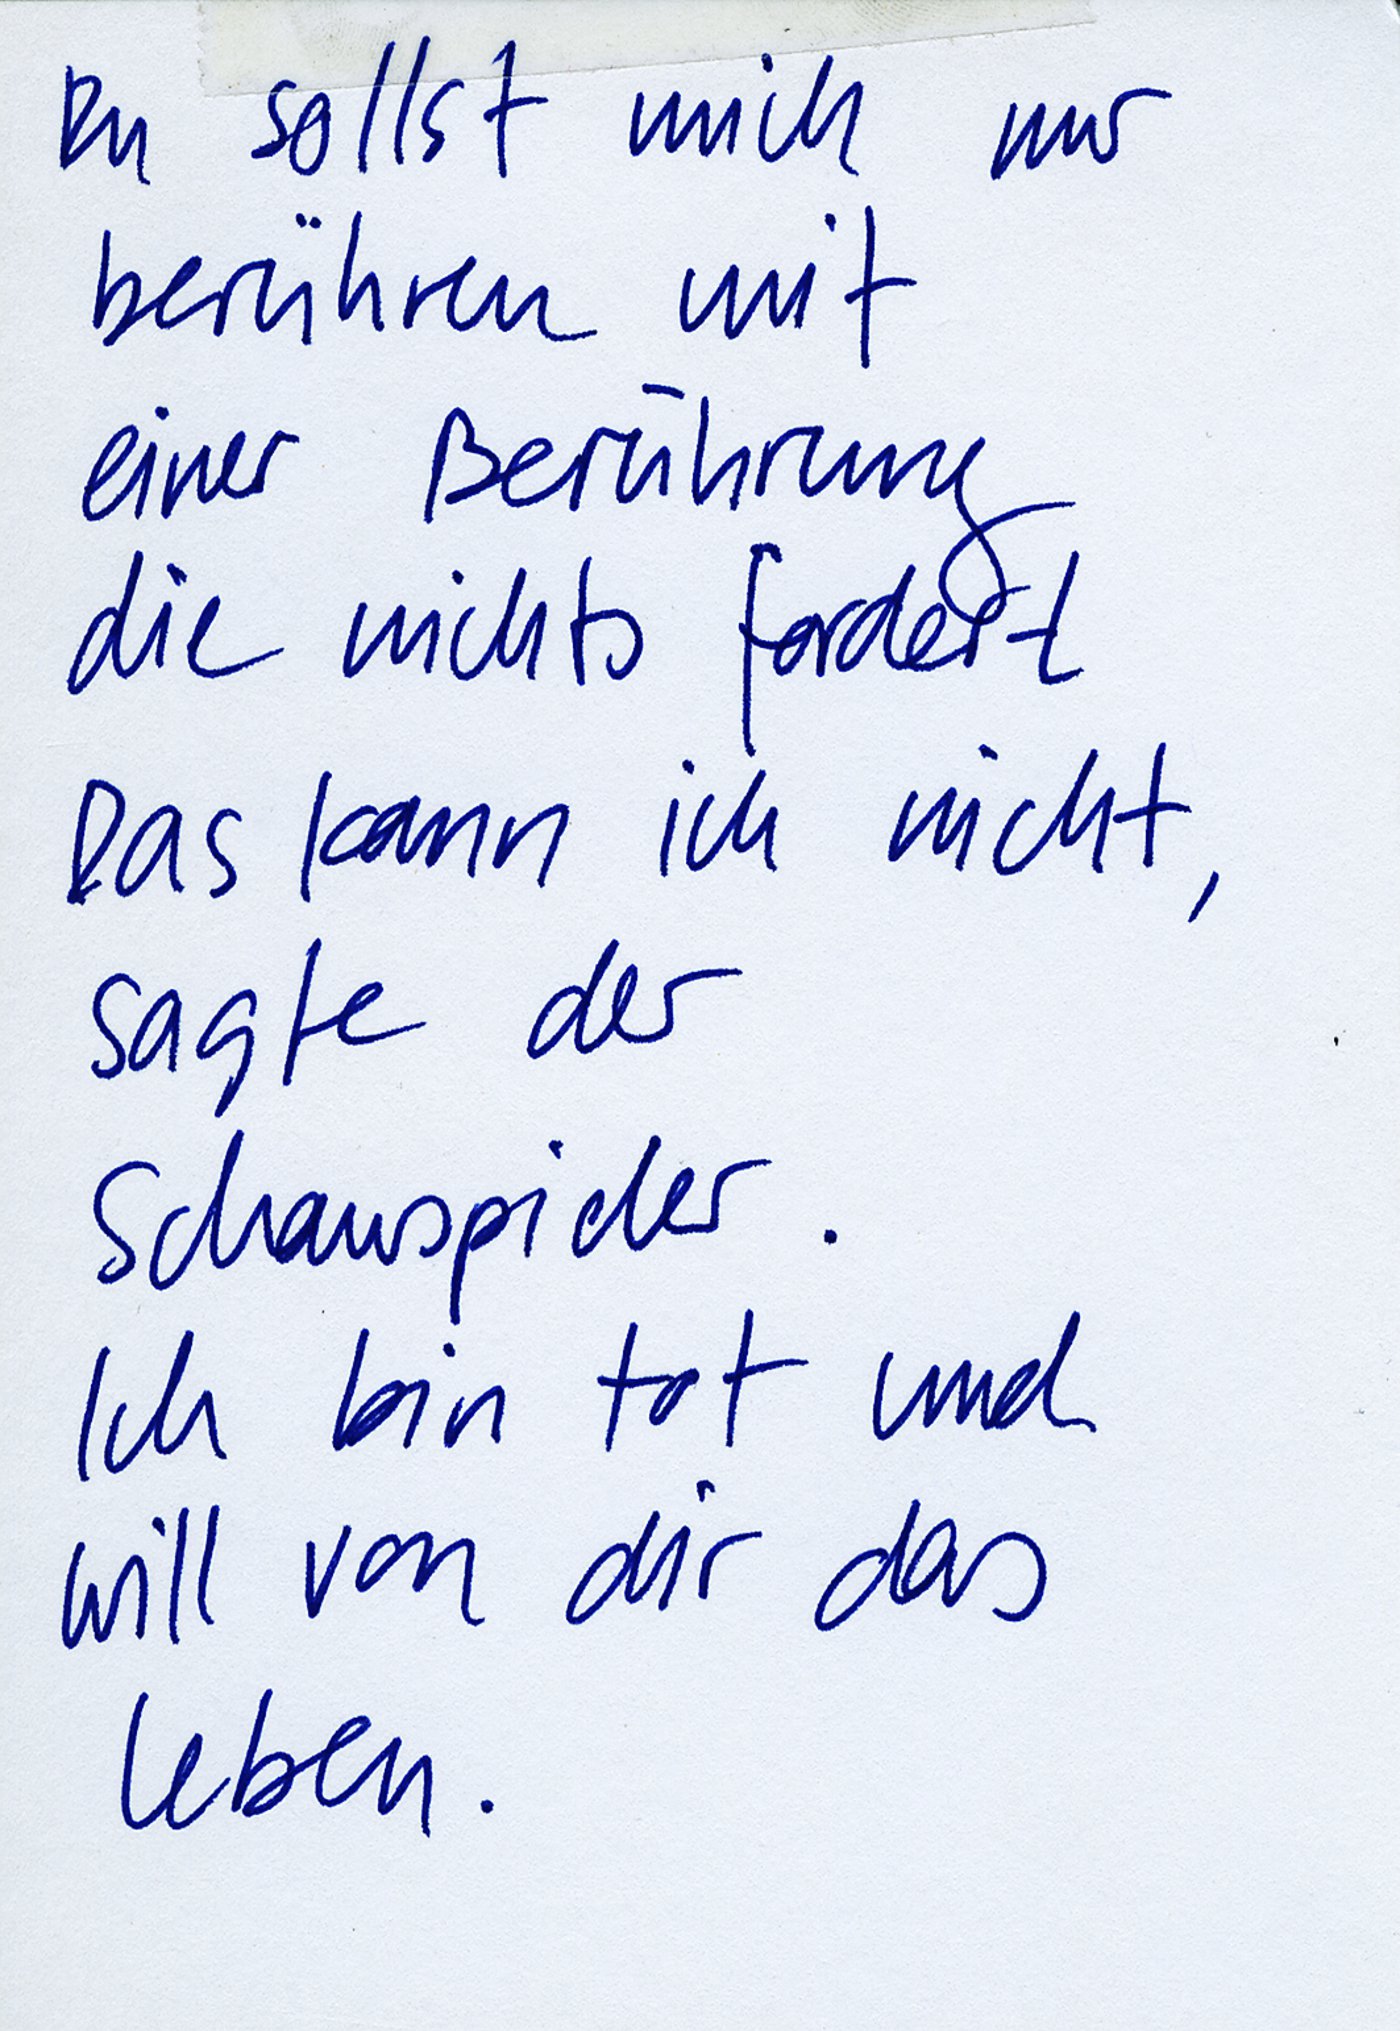 Du sollst mich nur
berühren mit
einer Berührung
die nichts fordert
Das kann ich nicht,
sagte der
Schauspieler.
Ich bin tot und
will von dir das
Leben.